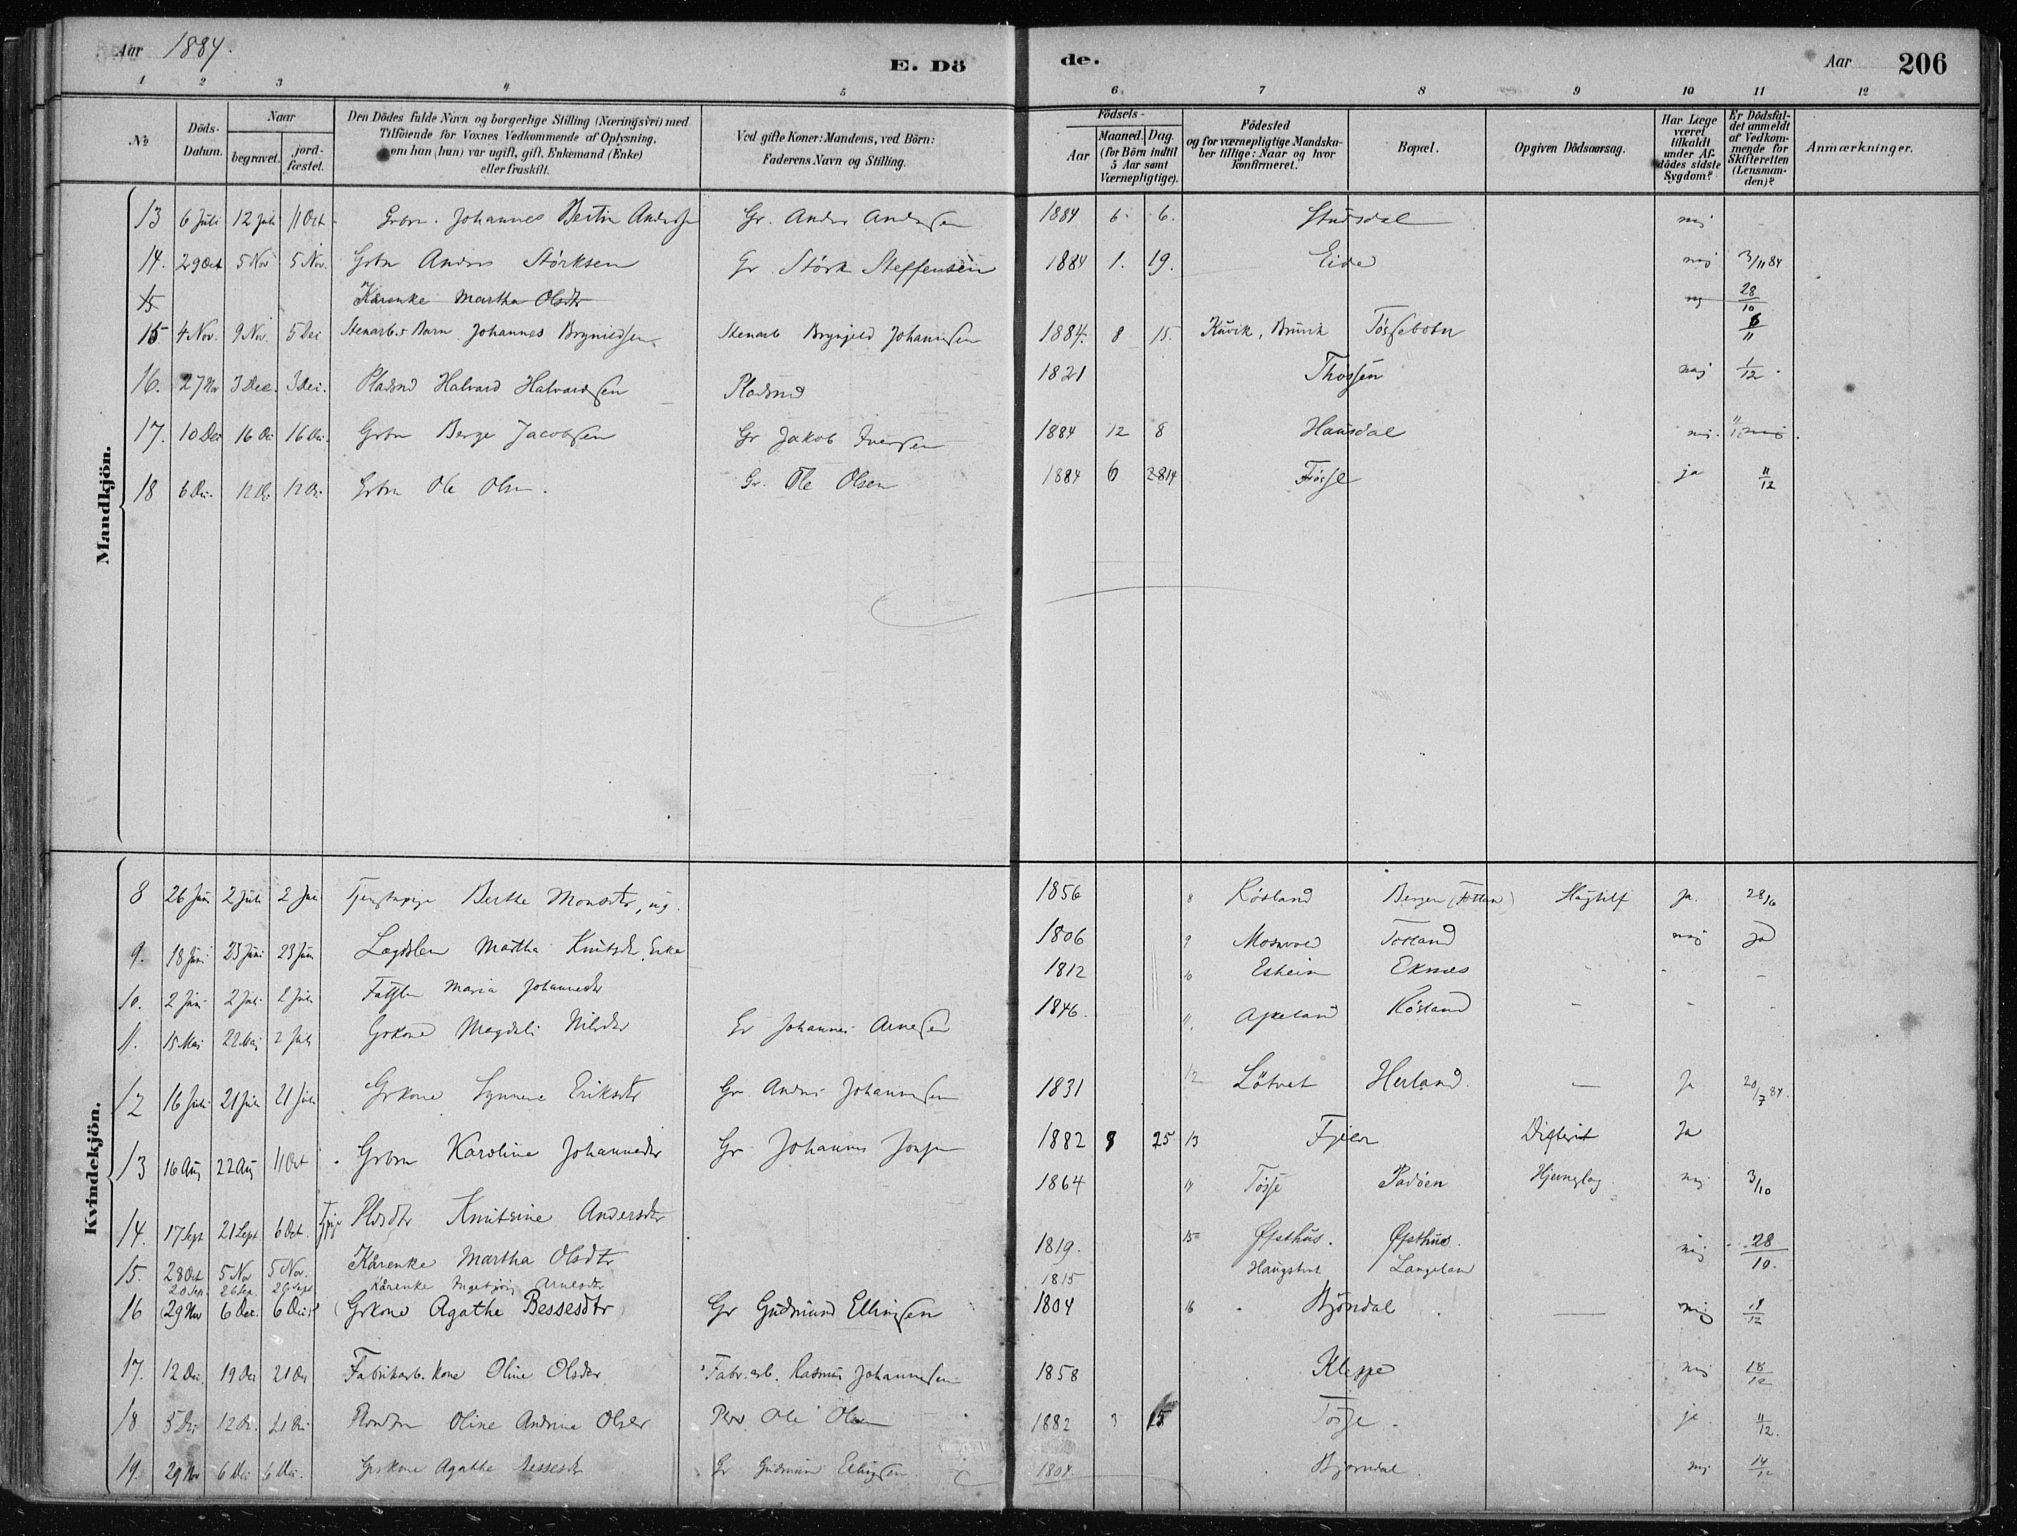 Aar 1884.
E. Dö de.
Aar 206
1 2 3 4 5 6 7 8 9 10 11 12
No
Döds-Datum.
Naar
begravet.
jord-fæstet.
Den Dödes fulde Navn og borgerlige Stilling (Næringsvei) med
Tilföiende for Voxnes Vedkommende af Oplysning,
om han (hun) var ugift, gift, Enkemand (Enke)
eller fraskilt.
Ved gifte Koner: Mandens, ved Börn:
Faderens Navn og Stilling.
Födsels-
Aar
Maaned. Dag.
(for Börn indtil 5 Aar samt Værnepligtige).
Födested
og for værnepligtige Mandskaber tillige: Naar og hvor konfirmeret.
Bopæl.
Opgiven Dödsaarsag.
Har Læge været tilkaldt under Afdödes sidste Sygdom?
Er Dödsfaldet anmeldt af Vedkommende for Skifteretten (Lensmanden)?
Anmærkninger.
Mandkjön.
13 6 Juli 12 Juli 11 Oct Grbrn. Johannes Bertin Anderss Gr. Anders Andersen 1884 6. 6. Studsdal nej
14. 29 Oct 5 Nov 5 Nov. Grbn Anders Störksen Gr. Störk Steffensen 1884 1. 19. Eide nej 3/11 84
15 Kårenke Martha Olsdtr nej 28/10
15 4 Nov. 9 Nov. 5 Dec Stenarb.s Barn Johannes Brynildsen Stenarb Brynjeld Johannesen 1884. 8 15. Kuvik, Bruvik Tössebotn 6/11
16. 27 Nov 3 Dec. 3 Dec. Pladsmd Halvard Halvardsen Pladsmd 1821 Thossen nej 1/12.
17. 10 Dec 16 De 16 Dec. Grbn Berge Jacobsen Gr Jakob Iversen 1884 12 8 Hausdal nej.
18 6 De. 12 De 12 De Grbn Ole Olsen. Gr. Ole Olsen 1884 6 28 14 Tösse ja 11/12
Kvindekjön.
8 26 Juni 2 Juli 2 Juli Berthe Monsdtr, ug. 1856 8 Rösland Bergen Ja. 28/6
9. 18 Juni 23 Juni 23 Juni Lægdslem Martha Knutsdr, Enke 1806 9 Mosevold Tosland nej Ja
10. 2 Juni 2 Juli 2 Juli Maria Johannesdtr 1812 10 Esheim Eknæs
11. 15 Mai 22 Maj 2 Juli Grkone Magdeli Nilsdtr Gr Johannes Arnesen 1846. 11. Apeland Rösland
12 16 Juli 21 Juli 21 Juli Grkone Synneve Eriksdtr Gr Anders Johannesen 1831 12 Lötvet Herland. — Ja 20/7 84.
13 16 Aug 22 Aug 11 Oct Grbrn Karoline Johannesdtr Gr. Johannes Jonsen 1882 8 25 13 Fjeer Difterit Ja
14. 17 Sept 21 Sept 6 Oct. Plsdtr Knutsine Andersdtr 1864 14 Tösse Padöen Hjerneslag nej 3/10
15. 28 Oct 5 Nov 5 Nov. Kårenke Martha Olsdtr 1819. 15 Øfsthus. Øfsthus. nej 28/10.
20 Sep. 26 Sep. 26 Sept Kårenke Ingebjörg Arnesdtr 1815 Langeland
16 (29 Nov 6 Dec. 6 Dec. (Grkone Agathe Bessesdtr) Gr Gudmund Ellingsen 1804 16 Bjöndal. — nej 14/12
17. 12 Dec. 19 Dec 21 Dec Fabrikarb. kone Oline Olsdtr Fabr.arb. Rasmus Johannesen 1858 Kleppe nej 18/12
18 5 De 12 De. 21 De Oline Andrine Olsdr Ole Olsen 1882 3 15 Tösse. ja 11/12.
19. 29 Nov 6 Dec 6 Dec. Grkone Agathe Bessesdr Gr Gudmun Ellingsen 1804 Bjorndal. nej 14/12